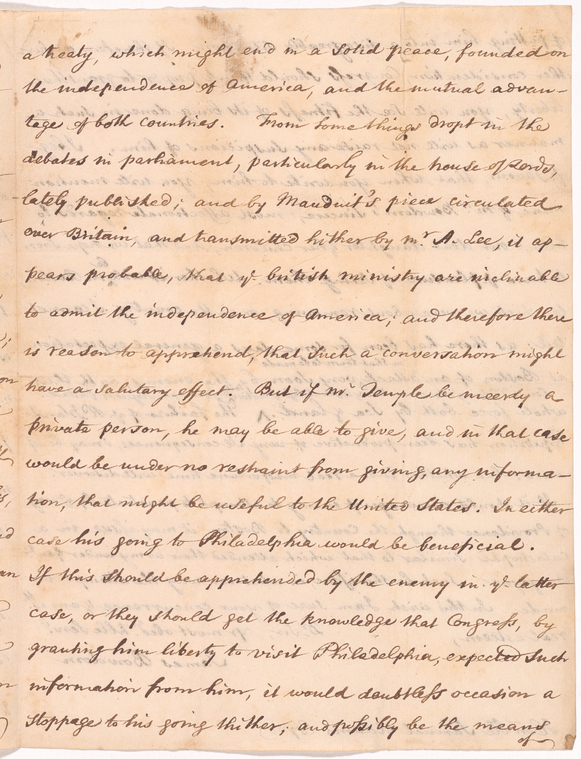 a treaty, which might end in a solid peace, founded on
the independence of America, and the mutual advan-
tage of both countries. From some things dropt in the
debates in parliament, particularly in the house of Lords,
lately published; and by Mauduit's piece circulated
over Britain, and transmitted hither by mr. A. Lee, it ap-
pears probable, that ye. british ministry are inclinable
to admit the independence of America; and therefore there
is reason to apprehend, that such a conversation might
have a salutary effect. But if mr. Temple be meerly a
private person, he may be able to give, and in that case
would be under no restraint from giving, any informa-
tion, that might be useful to the United States. In either
case his going to Philadelphia would be beneficial.
If this should be apprehended by the enemy in ye. latter
case, or they should get the knowledge that Congress, by
granting him liberty to visit Philadelphia, expected such
information from him, it would doubtless occasion a
stoppage to his going thither; and possibly be the means
of